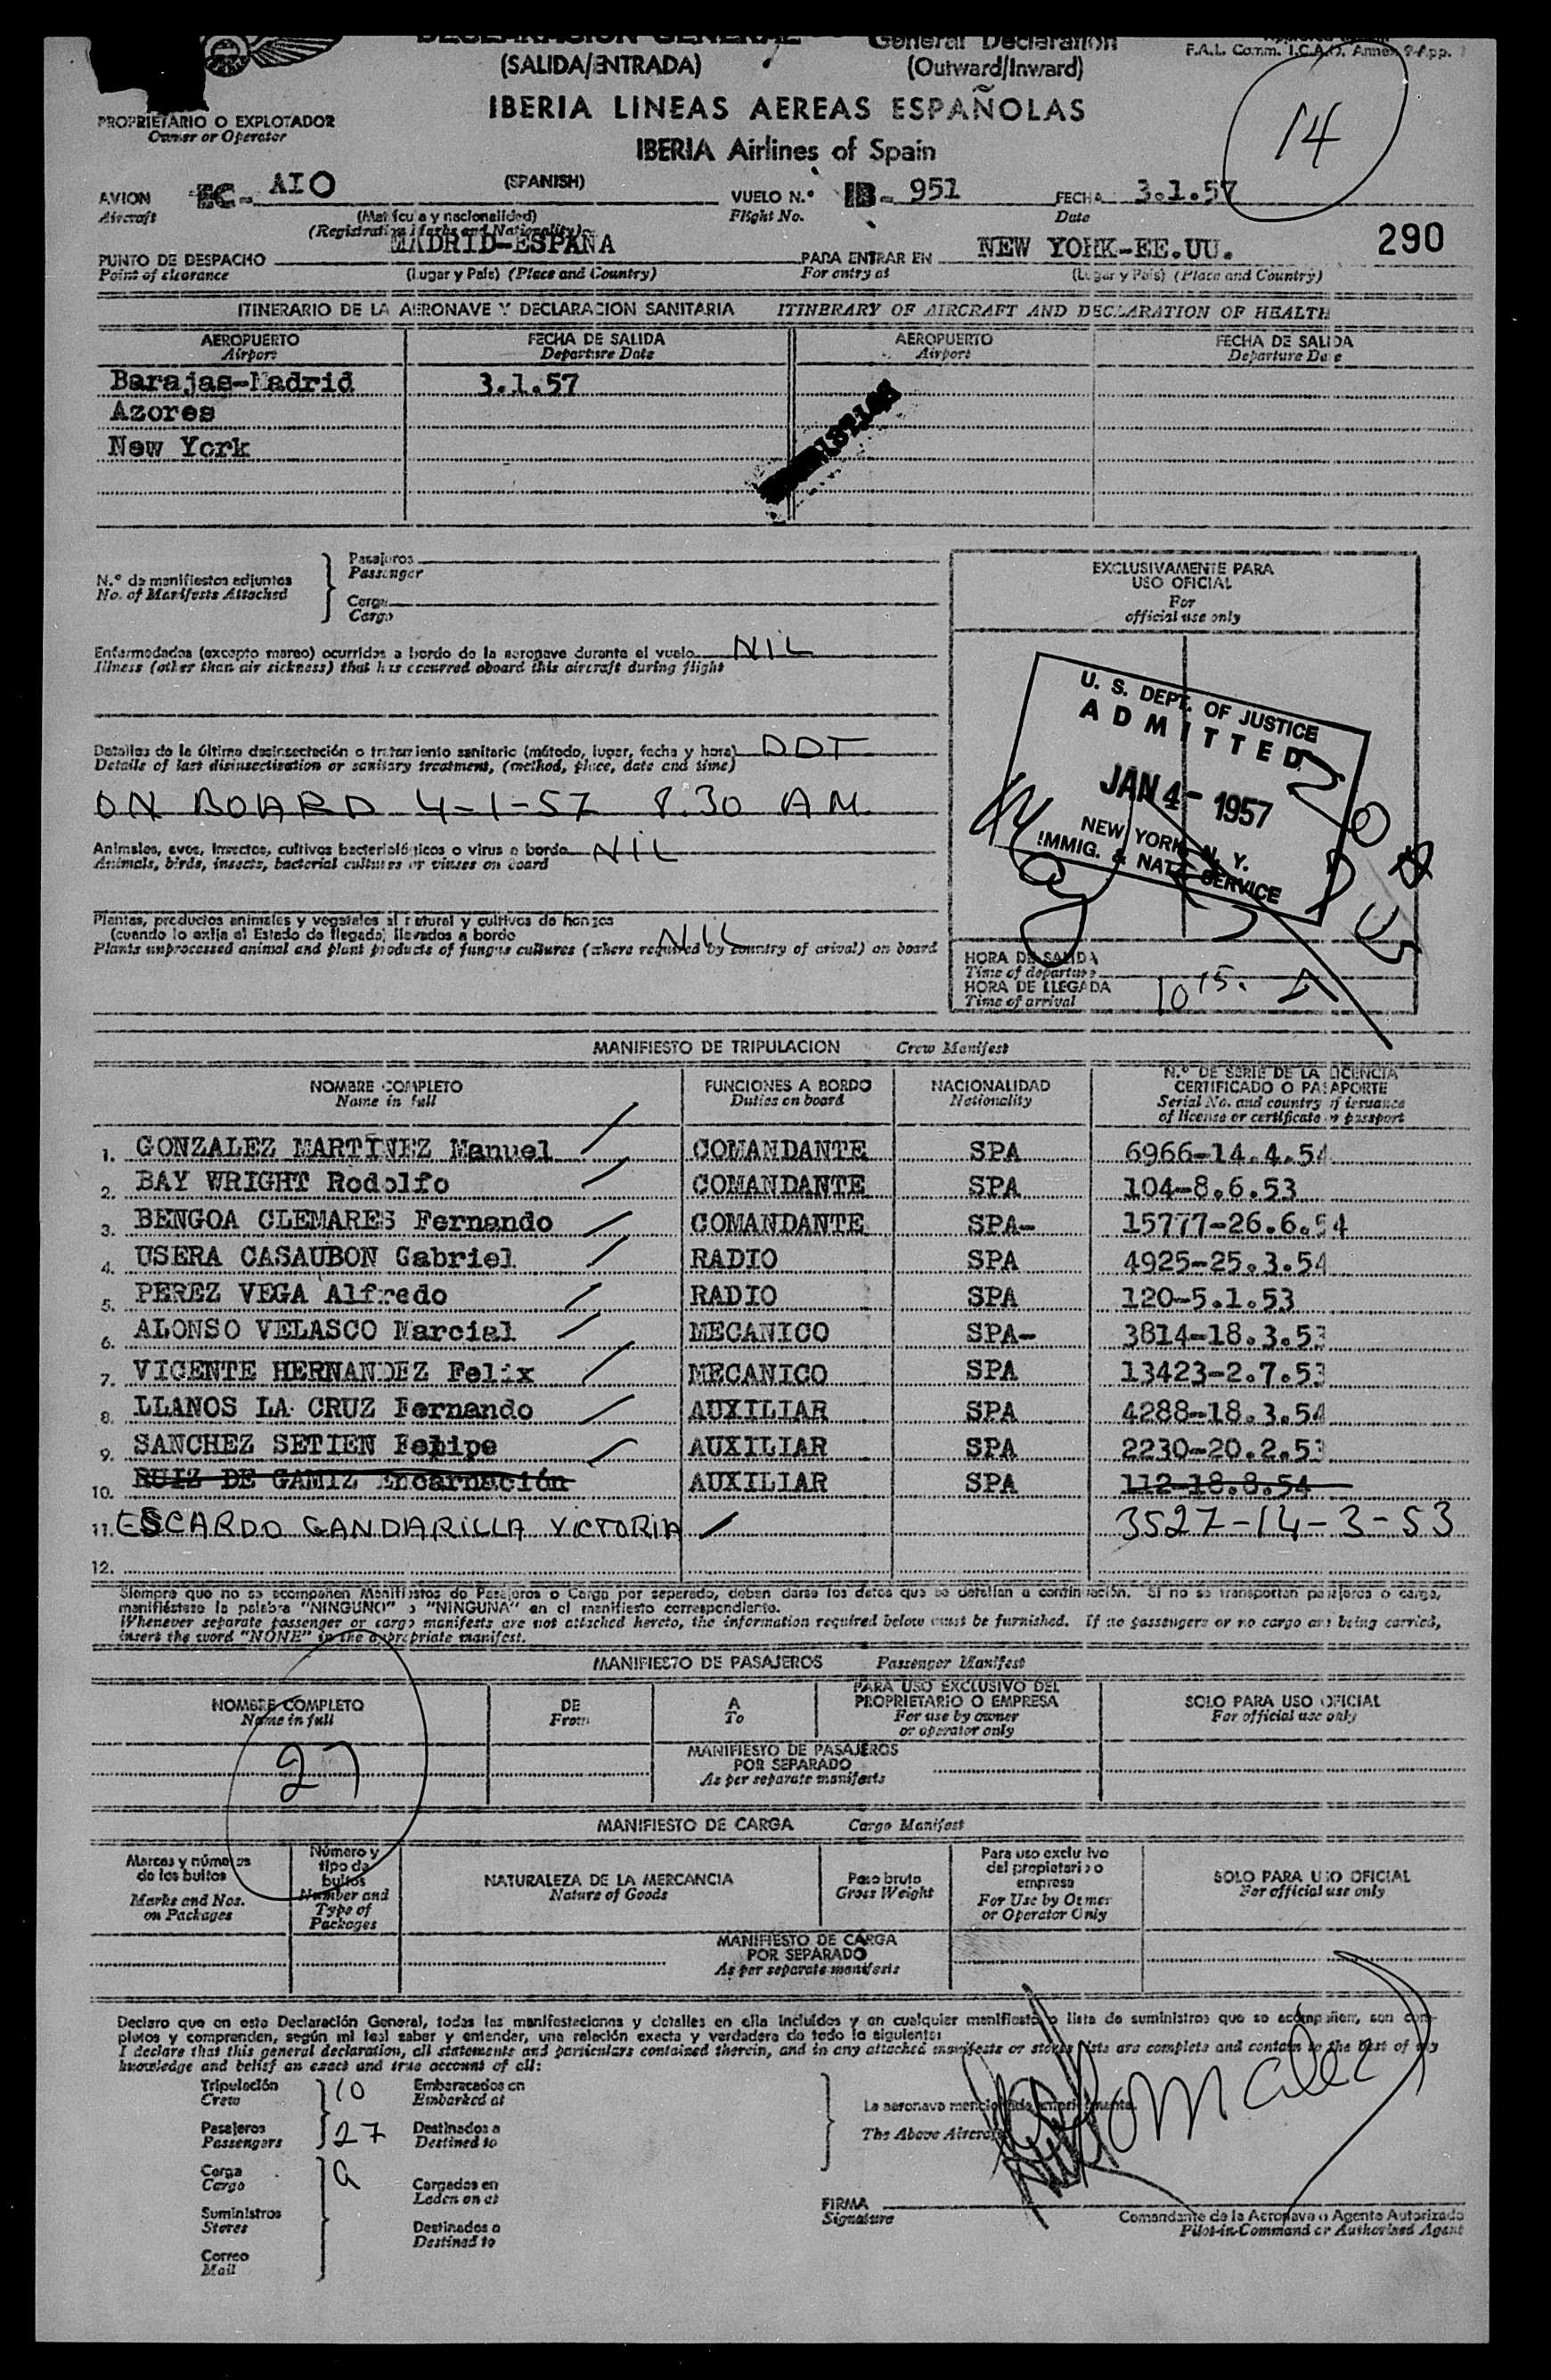 DECLARACION GENERAL General Declaration
F.A.L. Comm. I.C.A.O. Annex 9 App.
(SALIDA/ENTRADA) (Outward/Inward)
14
IBERIA LINEAS AEREAS ESPAÑOLAS
PROPRIETARIO O EXPLOTADOR
Owner or Operator
IBERIA Airlines of Spain
AVION EC- AIO (SPANISH) VUELO N.º IB- 951 FECHA 3.1.57
Aircraft (Matrícula y nacionalidad) Flight No. Date
(Registration Marks and Nationality)
MADRID-ESPAÑA NEW YORK-EE.UU. 290
PUNTO DE DESPACHO PARA ENTRAR EN
Point of clearance (Lugar y País) (Place and Country) For entry at (Lugar y País) (Place and Country)
ITINERARIO DE LA AERONAVE Y DECLARACION SANITARIA ITINERARY OF AIRCRAFT AND DECLARATION OF HEALTH
AEROPUERTO FECHA DE SALIDA AEROPUERTO FECHA DE SALIDA
Airport Departure Date Airport Departure Date
Barajas-Madrid 3.1.57
Azores
New York
Pasajeros
Passenger
N.º de manifiestos adjuntos
No. of Manifests Attached
Carga
Cargo
EXCLUSIVAMENTE PARA
USO OFICIAL
For
official use only
Enfermedades (excepto mareo) ocurridas a bordo de la aeronave durante el vuelo NIL
Illness (other than air sickness) that has occurred aboard this aircraft during flight
U. S. DEPT. OF JUSTICE
ADMITTED
JAN 4- 1957
NEW YORK, N. Y.
IMMIG. & NATZ SERVICE
Detalles de la última desinsectación o tratamiento sanitario (método, lugar, fecha y hora) DDT
Details of last disinsectization or sanitary treatment, (method, place, date and time)
ON BOARD 4-1-57 8.30 AM.
Animales, aves, insectos, cultivos bacteriológicos o virus a bordo NIL
Animals, birds, insects, bacterial cultures or viruses on board
Plantas, productos animales y vegetales al natural y cultivos de hongos
(cuando lo exija el Estado de llegada) llevados a bordo NIL
Plants unprocessed animal and plant products of fungus cultures (where required by country of arival) on board
HORA DE SALIDA
Time of departure
HORA DE LLEGADA
Time of arrival 10 15. A
MANIFIESTO DE TRIPULACION Crew Manifest
NOMBRE COMPLETO FUNCIONES A BORDO NACIONALIDAD N.º DE SERIE DE LA LICENCIA
Name in full Duties on board Nationality CERTIFICADO O PASAPORTE
Serial No. and country of issuance
of license or certificate or passport
1. GONZALEZ MARTINEZ Manuel COMANDANTE SPA 6966-14.4.54
2. BAY WRIGHT Rodolfo COMANDANTE SPA 104-8.6.53
3. BENGOA CLEMARES Fernando COMANDANTE SPA- 15777-26.6.54
4. USERA CASAUBON Gabriel RADIO SPA 4925-25.3.54
5. PEREZ VEGA Alfredo RADIO SPA 120-5.1.53
6. ALONSO VELASCO Marcial MECANICO SPA- 3814-18.3.53
7. VICENTE HERNANDEZ Felix MECANICO SPA 13423-2.7.53
8. LLANOS LA CRUZ Fernando AUXILIAR SPA 4288-18.3.54
9. SANCHEZ SETIEN Felipe AUXILIAR SPA 2230-20.2.53
10. RUIZ DE GAMIZ Encarnación AUXILIAR SPA 112-18.8.54
11. ESCARDO GANDARILLA VICTORIA 3527-14-3-53
12.
Siempre que no se acompañen Manifiestos de Pasajeros o Carga por separado, deben darse los datos que se detallan a continuación. Si no se transportan pasajeros o carga,
manifiéstese la palabra "NINGUNO" o "NINGUNA" en el manifiesto correspondiente.
Whenever separate passenger or cargo manifests are not attached hereto, the information required below must be furnished. If no passengers or no cargo are being carried,
insert the word "NONE" in the appropriate manifest.
MANIFIESTO DE PASAJEROS Passenger Manifest
NOMBRE COMPLETO DE A PARA USO EXCLUSIVO DEL SOLO PARA USO OFICIAL
Name in full From To PROPRIETARIO O EMPRESA For official use only
For use by owner
or operator only
27
MANIFIESTO DE PASAJEROS
POR SEPARADO
As per separate manifests
MANIFIESTO DE CARGA Cargo Manifest
Marcas y números
de los bultos
Marks and Nos.
on Packages
Número y
tipo de
bultos
Number and
Type of
Packages
NATURALEZA DE LA MERCANCIA
Nature of Goods
Peso bruto
Gross Weight
Para uso exclusivo
del propietario o
empresa
For Use by Owner
or Operator Only
SOLO PARA USO OFICIAL
For official use only
MANIFIESTO DE CARGA
POR SEPARADO
As per separate manifests
Declaro que en esta Declaración General, todas las manifestaciones y detalles en ella incluídos y en cualquier manifiesto o lista de suministros que se acompañen, son com-
pletos y comprenden, según mi leal saber y entender, una relación exacta y verdadera de todo lo siguiente:
I declare that this general declaration, all statements and particulars contained therein, and in any attached manifests or stores lists are complete and contain to the best of my
knowledge and belief an exact and true account of all:
Tripulación 10 Embarcados en
Crew Embarked at
Pasajeros 27 Destinados a
Passengers Destined to
La aeronave mencionada anteriormente.
The Above Aircraft
Carga a Cargados en
Cargo Laden on at
Suministros
Stores
Destinados a
Destined to
Correo
Mail
FIRMA
Signature
Comandante de la Aeronave o Agente Autorizado
Pilot-in-Command or Authorised Agent